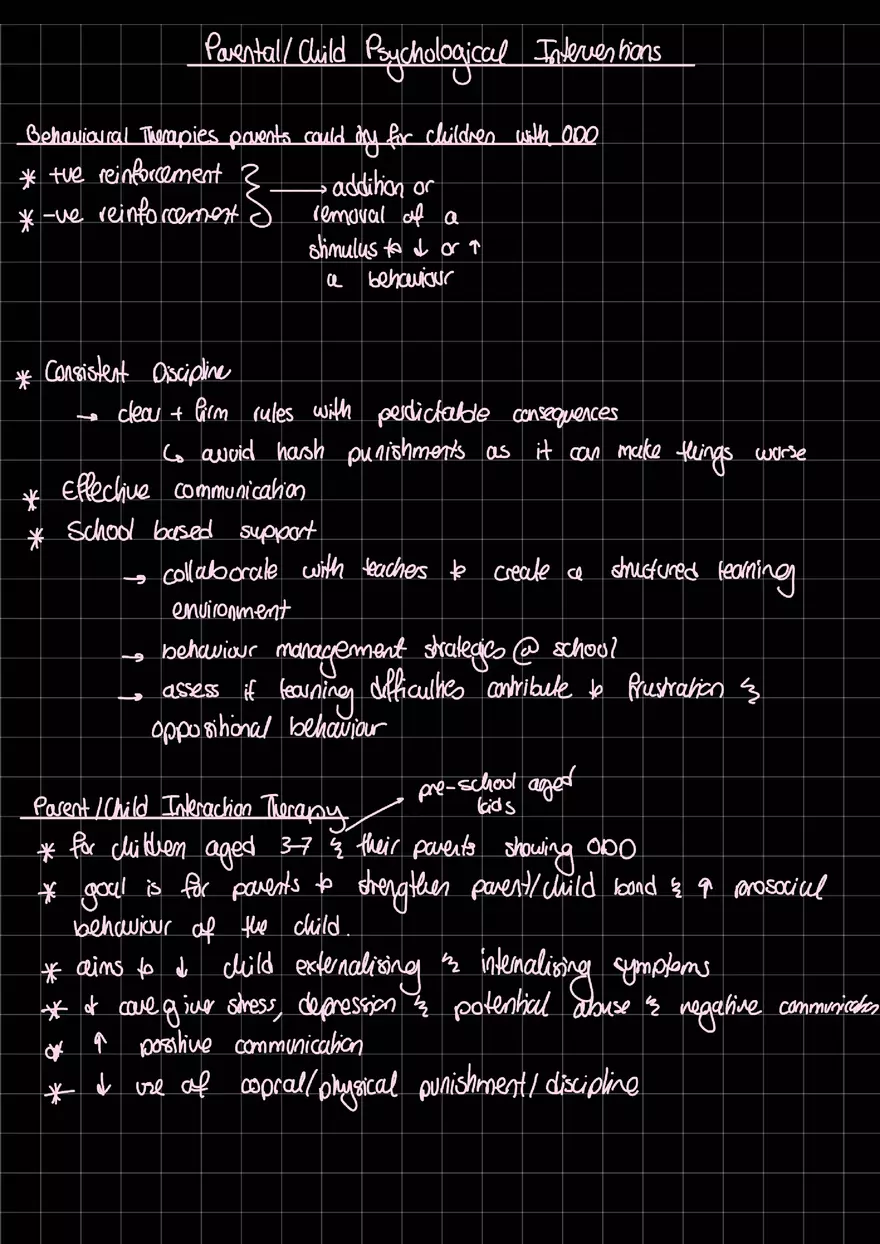 Parental/Child Psychological Interventions
Behavioural Therapies parents could try for children with ODD
* +ve reinforcement
* -ve reinforcement
→ addition or
removal of a
stimulus to ↓ or ↑
a behaviour
* Consistent Discipline
→ clear + firm rules with perdictable consequences
↳ avoid harsh punishments as it can make things worse
* Effective communication
* School based support
→ collaborate with teachers to create a structured learning
environment
→ behaviour management strategies @ school
→ assess if learning difficulties contribute to frustration &
oppositional behaviour
Parent/Child Interaction Therapy
→ pre-school aged
kids
* for children aged 3-7 & their parents showing ODD
* goal is for parents to strengthen parent/child bond & ↑ prosocial
behaviour of the child.
* aims to ↓ child externalising & internalising symptoms
* ↓ caregiver stress, depression & potential abuse & negative communication
* ↑ positive communication
* ↓ use of copral/physical punishment/discipline